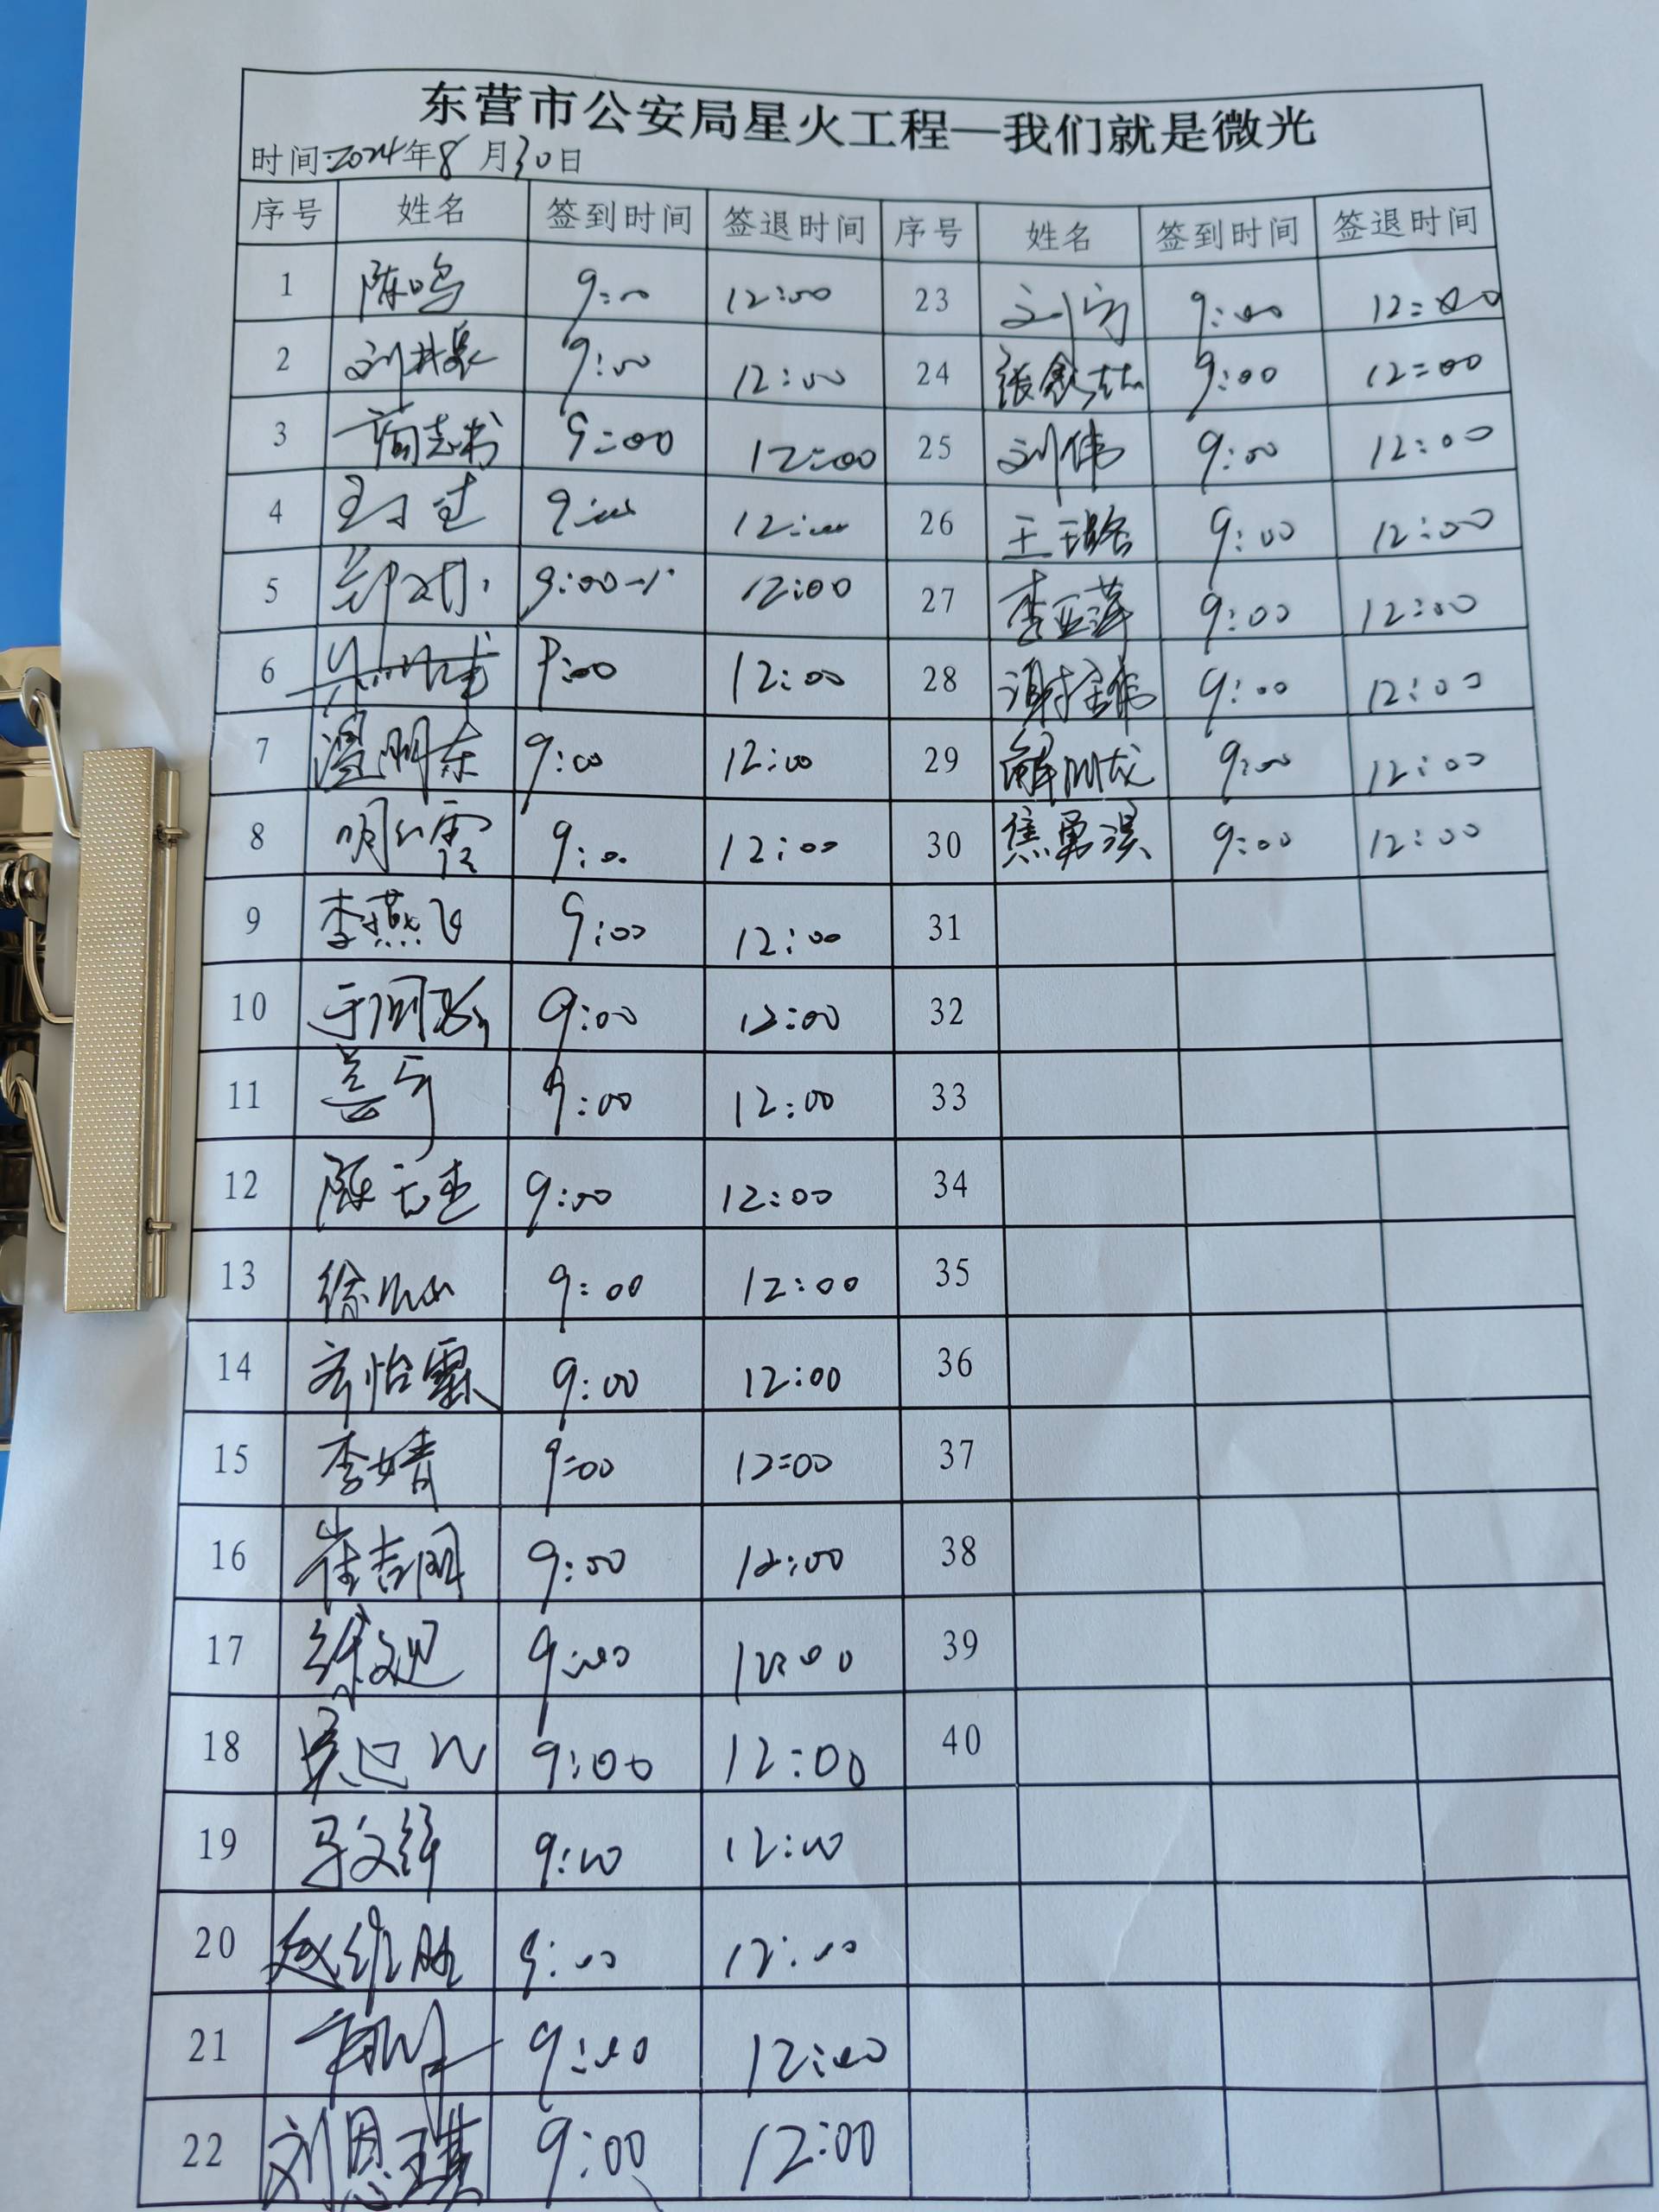 东营市公安局星火工程—我们就是微光
时间:2024年8月30日
序号 姓名 签到时间 签退时间 序号 姓名 签到时间 签退时间
1 陈鸣 9:00 12:00 23 刘宁 9:00 12:00
2 刘井泉 9:00 12:00 24 张念喆 9:00 12:00
3 9:00 12:00 25 刘伟 9:00 12:00
4 9:00 12:00 26 王璐 9:00 12:00
5 9:00 12:00 27 李亚萍 9:00 12:00
6 9:00 12:00 28 谢金伟 9:00 12:00
7 温明东 9:00 12:00 29 解成龙 9:00 12:00
8 明红霞 9:00 12:00 30 焦勇淇 9:00 12:00
9 李燕飞 9:00 12:00 31
10 9:00 12:00 32
11 盖宁 9:00 12:00 33
12 陈志杰 9:00 12:00 34
13 9:00 12:00 35
14 齐怡霖 9:00 12:00 36
15 李婧 9:00 12:00 37
16 崔吉国 9:00 12:00 38
17 9:00 12:00 39
18 9:00 12:00 40
19 马文锋 9:00 12:00
20 赵维胜 9:00 12:00
21 9:00 12:00
22 刘恩琪 9:00 12:00